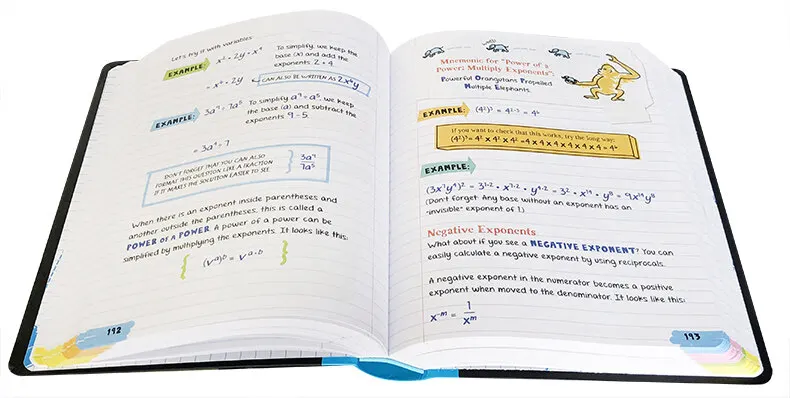 Let's try it with variables:
EXAMPLE: x² • 2y • x⁴
To simplify, we keep the
base (x) and add the
exponents 2 + 4.
= x⁶ • 2y
CAN ALSO BE WRITTEN AS 2x⁶y
EXAMPLE: 3a⁹ ÷ 7a⁵
To simplify a⁹ ÷ a⁵, we keep
the base (a) and subtract the
exponents 9 – 5.
DON'T FORGET THAT YOU CAN ALSO
FORMAT THIS QUESTION LIKE A FRACTION
IF IT MAKES THE SOLUTION EASIER TO SEE
3a⁹
7a⁵
When there is an exponent inside parentheses and
another outside the parentheses, this is called a
POWER OF A POWER. A power of a power can be
simplified by multiplying the exponents. It looks like this:
(vᵃ)ᵇ = vᵃ•ᵇ
192
Mnemonic for "Power of a
Power: Multiply Exponents":
Powerful Orangutans Propelled
Multiple Elephants.
EXAMPLE: (4²)³ = 4²•³ = 4⁶
If you want to check that this works, try the long way:
(4²)³ = 4² x 4² x 4² = 4 x 4 x 4 x 4 x 4 x 4 = 4⁶
EXAMPLE:
(3x⁷y⁴)² = 3¹•² • x⁷•² • y⁴•² = 3² • x¹⁴ • y⁸ = 9x¹⁴y⁸
(Don't forget: Any base without an exponent has an
"invisible" exponent of 1.)
Negative Exponents
What about if you see a NEGATIVE EXPONENT? You can
easily calculate a negative exponent by using reciprocals.
A negative exponent in the numerator becomes a positive
exponent when moved to the denominator. It looks like this:
x⁻ᵐ = 1/xᵐ
193